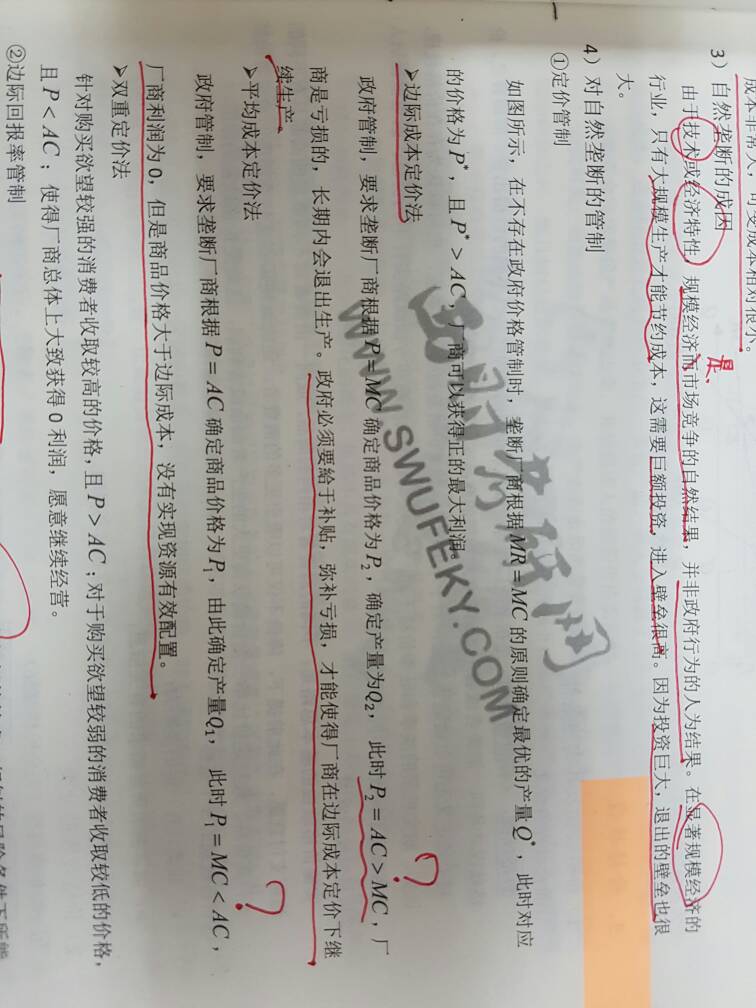 成本非常大，可变成本相对很小。
3）自然垄断的成因
是、
由于技术或经济特性，规模经济而市场竞争的自然结果，并非政府行为的人为结果。在显著规模经济的
行业，只有大规模生产才能节约成本，这需要巨额投资，进入壁垒很高。因为投资巨大，退出的壁垒也很
大。
4）对自然垄断的管制
①定价管制
如图所示，在不存在政府价格管制时，垄断厂商根据MR=MC的原则确定最优的产量Q*，此时对应
的价格为P*，且P*>AC，厂商可以获得正的最大利润。
➢边际成本定价法
政府管制，要求垄断厂商根据P=MC确定商品价格为P₂，确定产量为Q₂，此时P₂=AC>MC，厂
?
商是亏损的，长期内会退出生产。政府必须要给于补贴，弥补亏损，才能使得厂商在边际成本定价下继
续生产。
➢平均成本定价法
政府管制，要求垄断厂商根据P=AC确定商品价格为P₁，由此确定产量Q₁，此时P₁=MC<AC，
?
厂商利润为0，但是商品价格大于边际成本，没有实现资源有效配置。
➢双重定价法
针对购买欲望较强的消费者收取较高的价格，且P>AC；对于购买欲望较弱的消费者收取较低的价格，
且P<AC；使得厂商总体上大致获得0利润，愿意继续经营。
②边际回报率管制
西财考研网
WWW.SWUFEKY.COM